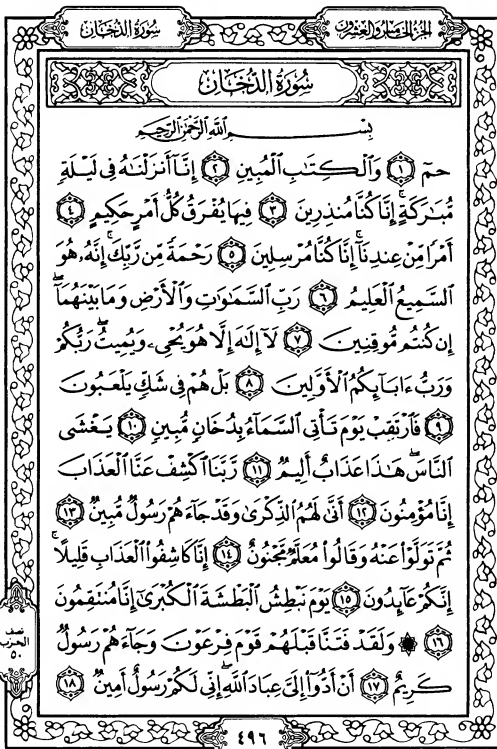 سُورَةُ الدُّخَانِ
الجُزْءُ الخَامِسُ وَالعِشْرُونَ
سُورَةُ الدُّخَانِ
بِسْمِ اللَّهِ الرَّحْمَٰنِ الرَّحِيمِ
حمٓ ١ وَالْكِتَابِ الْمُبِينِ ٢ إِنَّا أَنزَلْنَاهُ فِي لَيْلَةٍ
مُّبَارَكَةٍ ۚ إِنَّا كُنَّا مُنذِرِينَ ٣ فِيهَا يُفْرَقُ كُلُّ أَمْرٍ حَكِيمٍ ٤
أَمْرًا مِّنْ عِندِنَا ۚ إِنَّا كُنَّا مُرْسِلِينَ ٥ رَحْمَةً مِّن رَّبِّكَ ۚ إِنَّهُۥ هُوَ
السَّمِيعُ الْعَلِيمُ ٦ رَبِّ السَّمَٰوَٰتِ وَالْأَرْضِ وَمَا بَيْنَهُمَا ۖ
إِن كُنتُم مُّوقِنِينَ ٧ لَآ إِلَٰهَ إِلَّا هُوَ يُحْىِۦ وَيُمِيتُ ۖ رَبُّكُمْ
وَرَبُّ ءَابَآئِكُمُ الْأَوَّلِينَ ٨ بَلْ هُمْ فِي شَكٍّ يَلْعَبُونَ
٩ فَارْتَقِبْ يَوْمَ تَأْتِي السَّمَآءُ بِدُخَانٍ مُّبِينٍ ١٠ يَغْشَى
النَّاسَ ۖ هَٰذَا عَذَابٌ أَلِيمٌ ١١ رَّبَّنَا اكْشِفْ عَنَّا الْعَذَابَ
إِنَّا مُؤْمِنُونَ ١٢ أَنَّىٰ لَهُمُ الذِّكْرَىٰ وَقَدْ جَآءَهُمْ رَسُولٌ مُّبِينٌ ١٣
ثُمَّ تَوَلَّوْا عَنْهُ وَقَالُوا مُعَلَّمٌ مَّجْنُونٌ ١٤ إِنَّا كَاشِفُوا الْعَذَابِ قَلِيلًا ۚ
إِنَّكُمْ عَآئِدُونَ ١٥ يَوْمَ نَبْطِشُ الْبَطْشَةَ الْكُبْرَىٰٓ إِنَّا مُنتَقِمُونَ
١٦ ۞ وَلَقَدْ فَتَنَّا قَبْلَهُمْ قَوْمَ فِرْعَوْنَ وَجَآءَهُمْ رَسُولٌ
كَرِيمٌ ١٧ أَنْ أَدُّوٓا إِلَيَّ عِبَادَ اللَّهِ ۖ إِنِّي لَكُمْ رَسُولٌ أَمِينٌ ١٨
نصف
الحزب
٥٠
٤٩٦